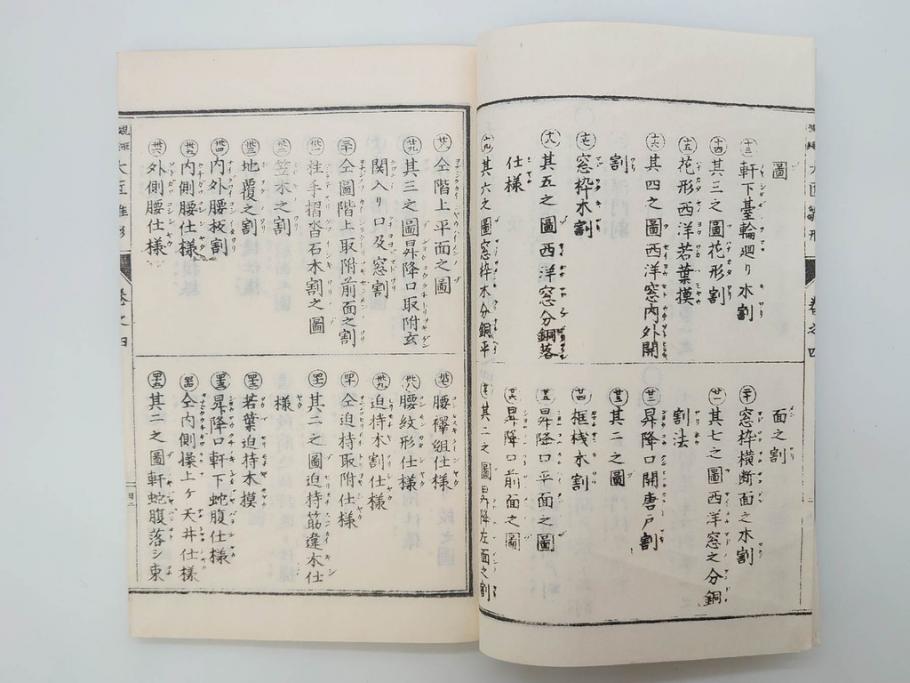 圖
十三 軒下臺輪廻リ木割
十四 其三之圖花形割
十五 花形西洋若葉摸
十六 其四之圖西洋窓内外開
割
十七 窓枠木割
十八 其五之圖西洋窓分銅落
仕様
十九 其六之圖窓枠木分銅平
面之割
二十 窓枠横断面之木割
廿一 其七之圖西洋窓之分銅
割法
廿二 昇降口開唐戸割
廿三 其二之圖
廿四 框桟木割
廿五 昇降口平面之圖
廿六 昇降口前面之圖
其二之圖昇降左面之割
大匠雛形
巻之四
廿八 仝階上平面之圖
廿九 其三之圖昇降口取附玄
関入リ口及窓割
三十 仝圖階上取附前面之割
卅一 柱手摺沓石木割之圖
卅二 笠木之割
卅三 地覆之割
卅四 内外腰板割
卅五 内側腰仕様
卅六 外側腰仕様
卅七 腰襷組仕様
卅八 腰紋形仕様
卅九 迫持木割仕様
四十 仝迫持取附仕様
四一 其二之圖迫持筋違木仕
様
四二 若葉迫持木摸
四三 昇降口軒下蛇腹仕様
四四 仝内側操上ケ天井仕様
四五 其二之圖軒蛇腹落シ束
大匠雛形
巻之四